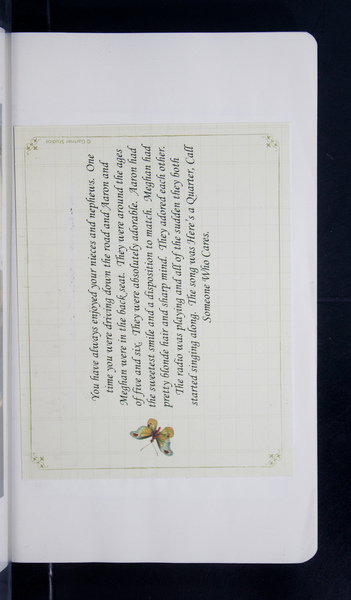 You have always enjoyed your nieces and nephews. One
time you were driving down the road and Aaron and
Meghan were in the back seat. They were around the ages
of five and six. They were absolutely adorable. Aaron had
the sweetest smile and a disposition to match. Meghan had
pretty blonde hair and sharp mind. They adored each other.
The radio was playing and all of the sudden they both
started singing along. The song was Here's a Quarter, Call
Someone Who Cares.
© Gartner Studios